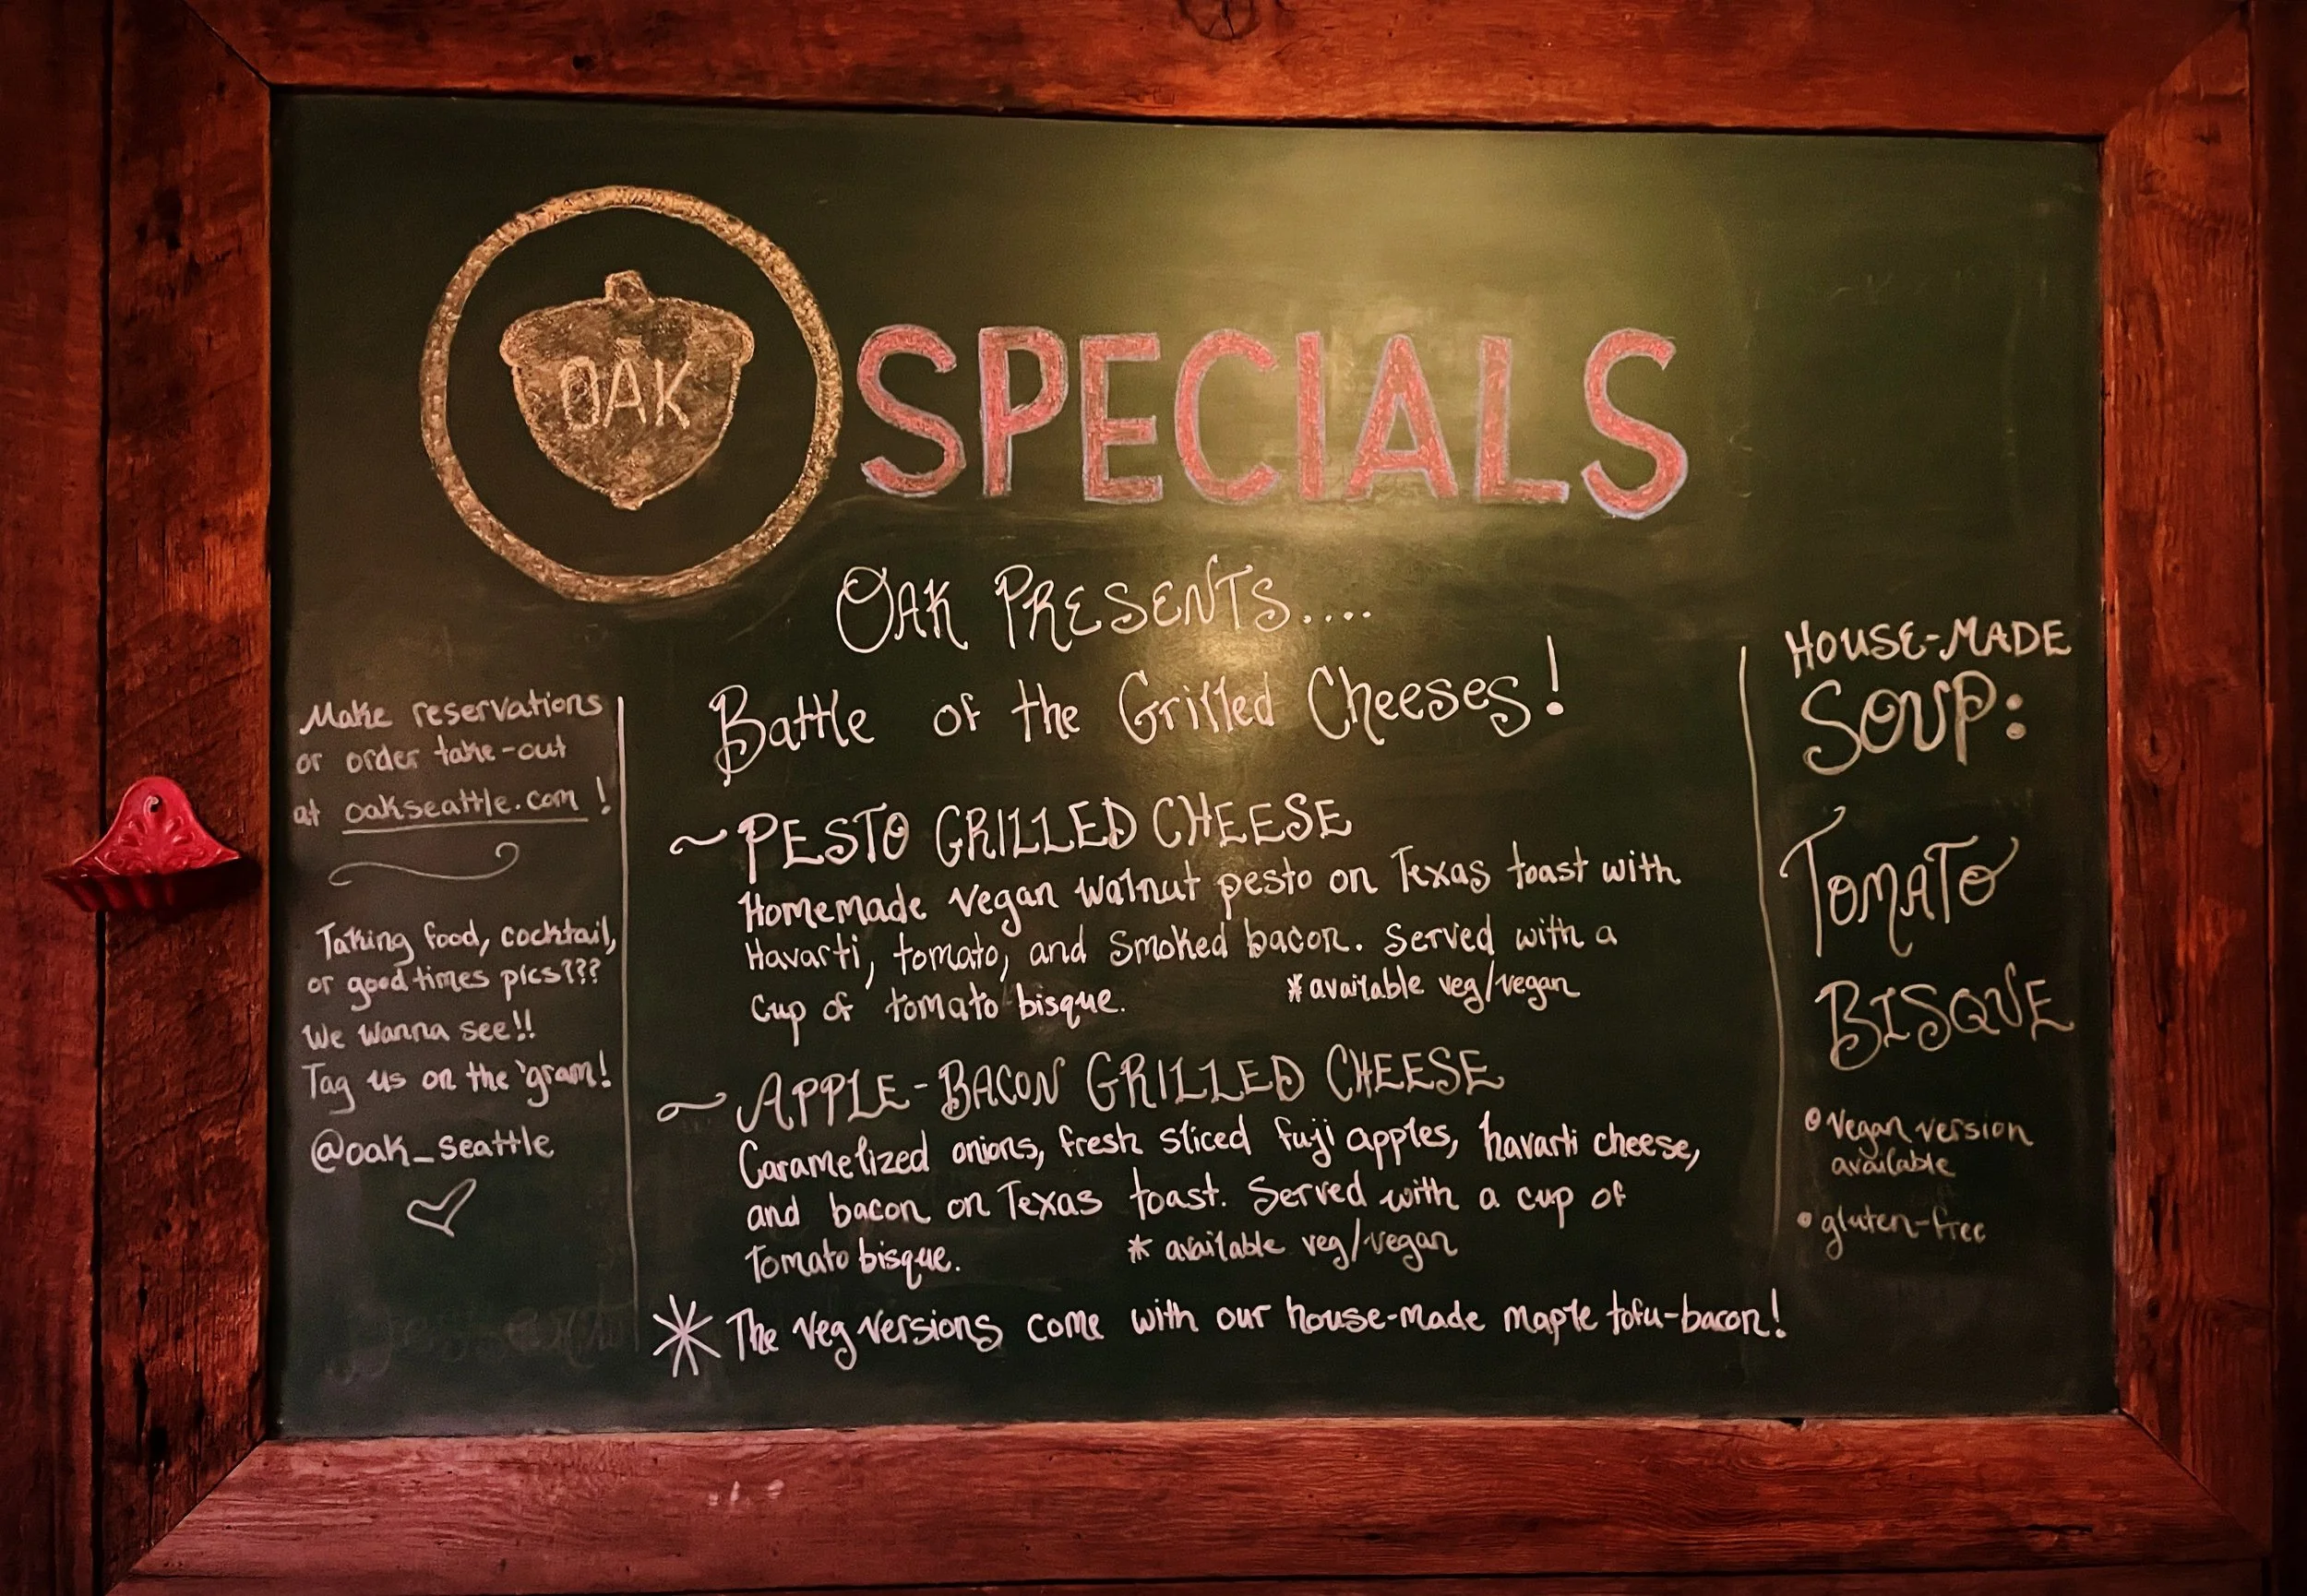 OAK
SPECIALS
OAK PRESENTS....
Battle of the Grilled Cheeses!
~PESTO GRILLED CHEESE
Homemade Vegan walnut pesto on Texas toast with
Havarti, tomato, and Smoked bacon. Served with a
Cup of tomato bisque. *available veg/vegan
~APPLE-BACON GRILLED CHEESE
Caramelized onions, fresh sliced fuji apples, havarti cheese,
and bacon on Texas toast. Served with a cup of
Tomato bisque. * available veg/vegan
* The Veg versions come with our house-made maple tofu-bacon!
Make reservations
or order take-out
at oakseattle.com!
Taking food, cocktail,
or good times pics???
We wanna see!!
Tag us on the 'gram!
@oak_seattle
HOUSE-MADE
SOUP:
TOMATO
BISQUE
• Vegan version
available
• gluten-free